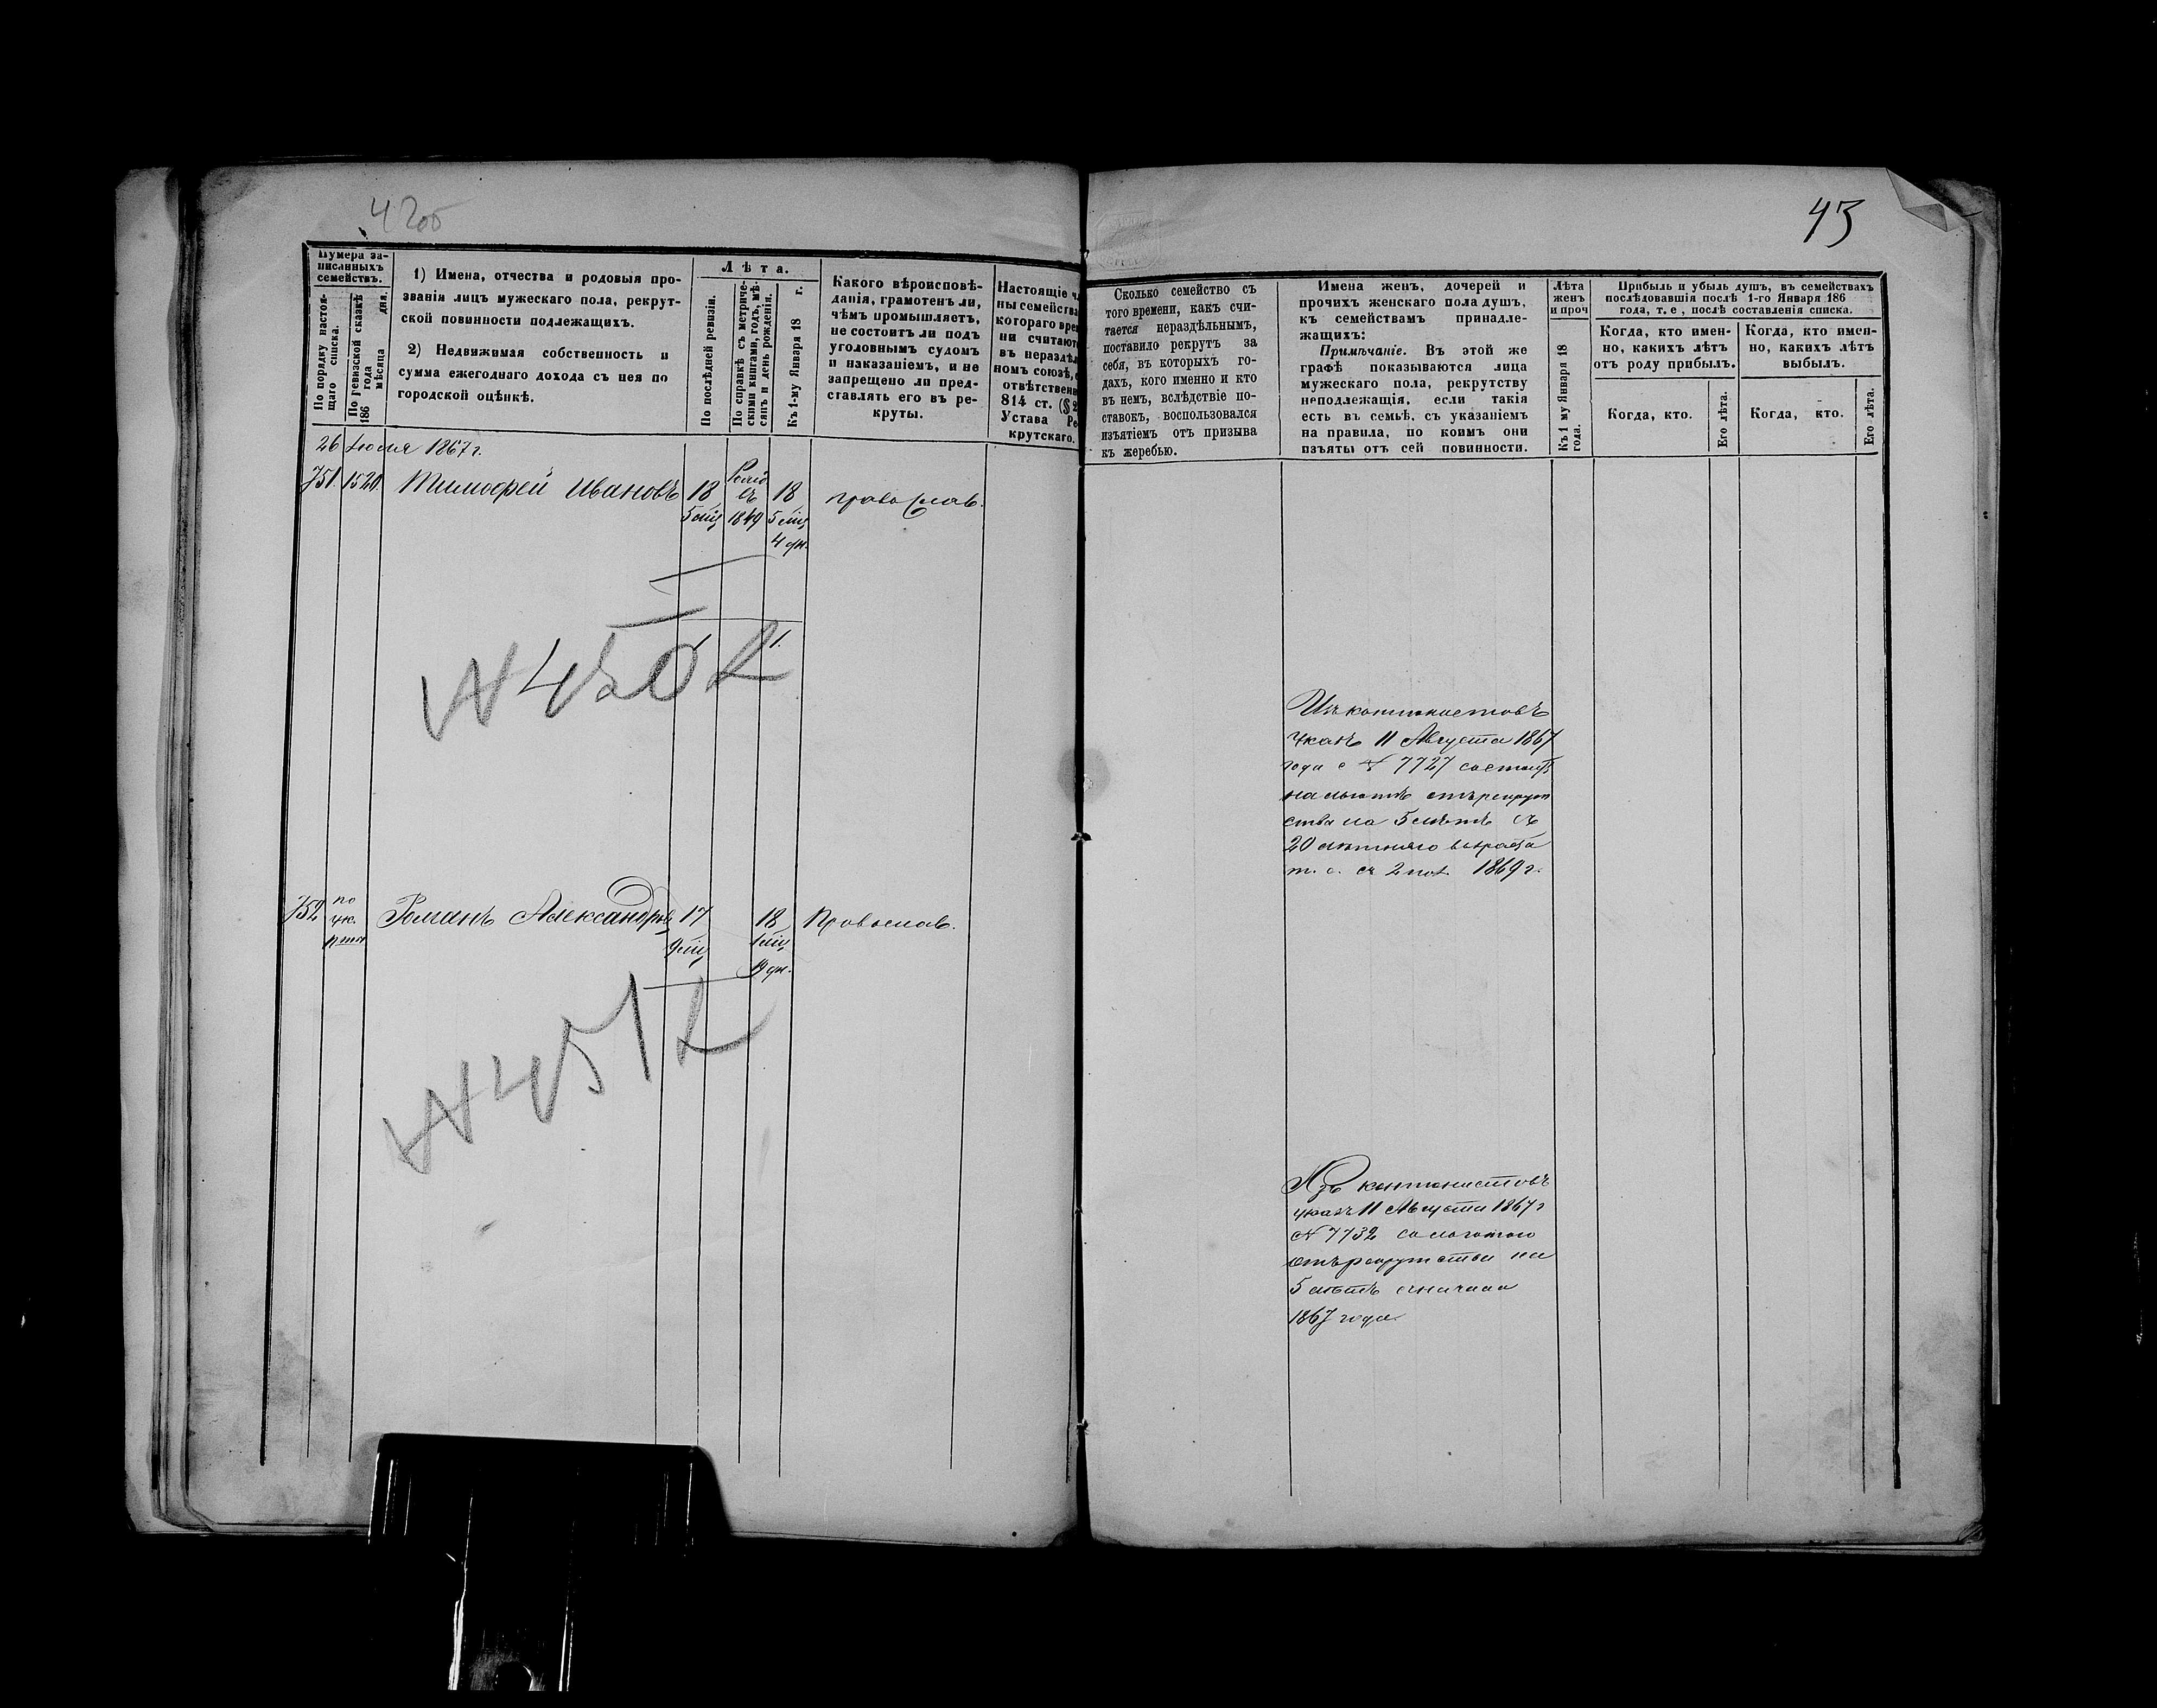 43
Нумера за-
писанныхъ
семействъ.
По порядку настоя-
щаго списка.
По ревизской сказкѣ
186 года
мѣсяца дня.
1) Имена, отчества и родовыя про-
званія лицъ мужескаго пола, рекрут-
ской повинности подлежащихъ.
2) Недвижимая собственность и
сумма ежегоднаго дохода съ нея по
городской оцѣнкѣ.
Лѣта.
По послѣдней ревизіи.
По справкѣ съ метриче-
скими книгами, годъ, мѣ-
сяцъ и день рожденія.
Къ 1-му Января 18 г.
Какого вѣроисповѣ-
данія, грамотенъ ли,
чѣмъ промышляетъ,
не состоитъ ли подъ
уголовнымъ судомъ
и наказаніемъ, и не
запрещено ли пред-
ставлять его въ ре-
круты.
Настоящіе
ны семейства
котораго
ни считают
въ нераздѣл
номъ союзѣ,
отвѣтствен
814 ст. (§
Устава Ре
крутскаго.
Сколько семейство съ
того времени, какъ счи-
тается нераздѣльнымъ,
поставило рекрутъ за
себя, въ которыхъ го-
дахъ, кого именно и кто
въ немъ, вслѣдствіе по-
ставокъ, воспользовался
изъятіемъ отъ призыва
къ жеребью.
Имена женъ, дочерей и
прочихъ женскаго пола душъ,
къ семействамъ принадле-
жащихъ:
Примѣчаніе. Въ этой же
графѣ показываются лица
мужескаго пола, рекрутству
неподлежащія, если такія
есть въ семьѣ, съ указаніемъ
на правила, по коимъ они
изъяты отъ сей повинности.
Лѣта
женъ
и проч
Къ 1 му Января 18
года.
Прибыль и убыль душъ, въ семействахъ
послѣдовавшія послѣ 1-го Января 186
года, т. е, послѣ составленія списка.
Когда, кто имен-
но, какихъ лѣтъ
отъ роду прибылъ.
Когда, кто имен-
но, какихъ лѣтъ
выбылъ.
Когда, кто.
Его лѣта.
Когда, кто.
Его лѣта.
26 1867 г.
751. 1520. Тимофей Ивановъ 18 18 православ.
1849
4 дн.
1 1.
№ 450
Изъ кантонистовъ
указъ 11 Августа 1867
года № 7727 состоитъ
на льготѣ отъ рекрут
ства на 5 лѣтъ съ
20 лѣтняго возраста
т. е. съ 2 1869 г.
752 по
ук.
Романъ Александровъ 17 18 Православ.
19 дн.
№ 451
Изъ кантонистовъ
указъ 11 Августа 1867 г
№ 7732 со льготою
отъ рекрутства на
5 лѣтъ съ начала
1867 года.